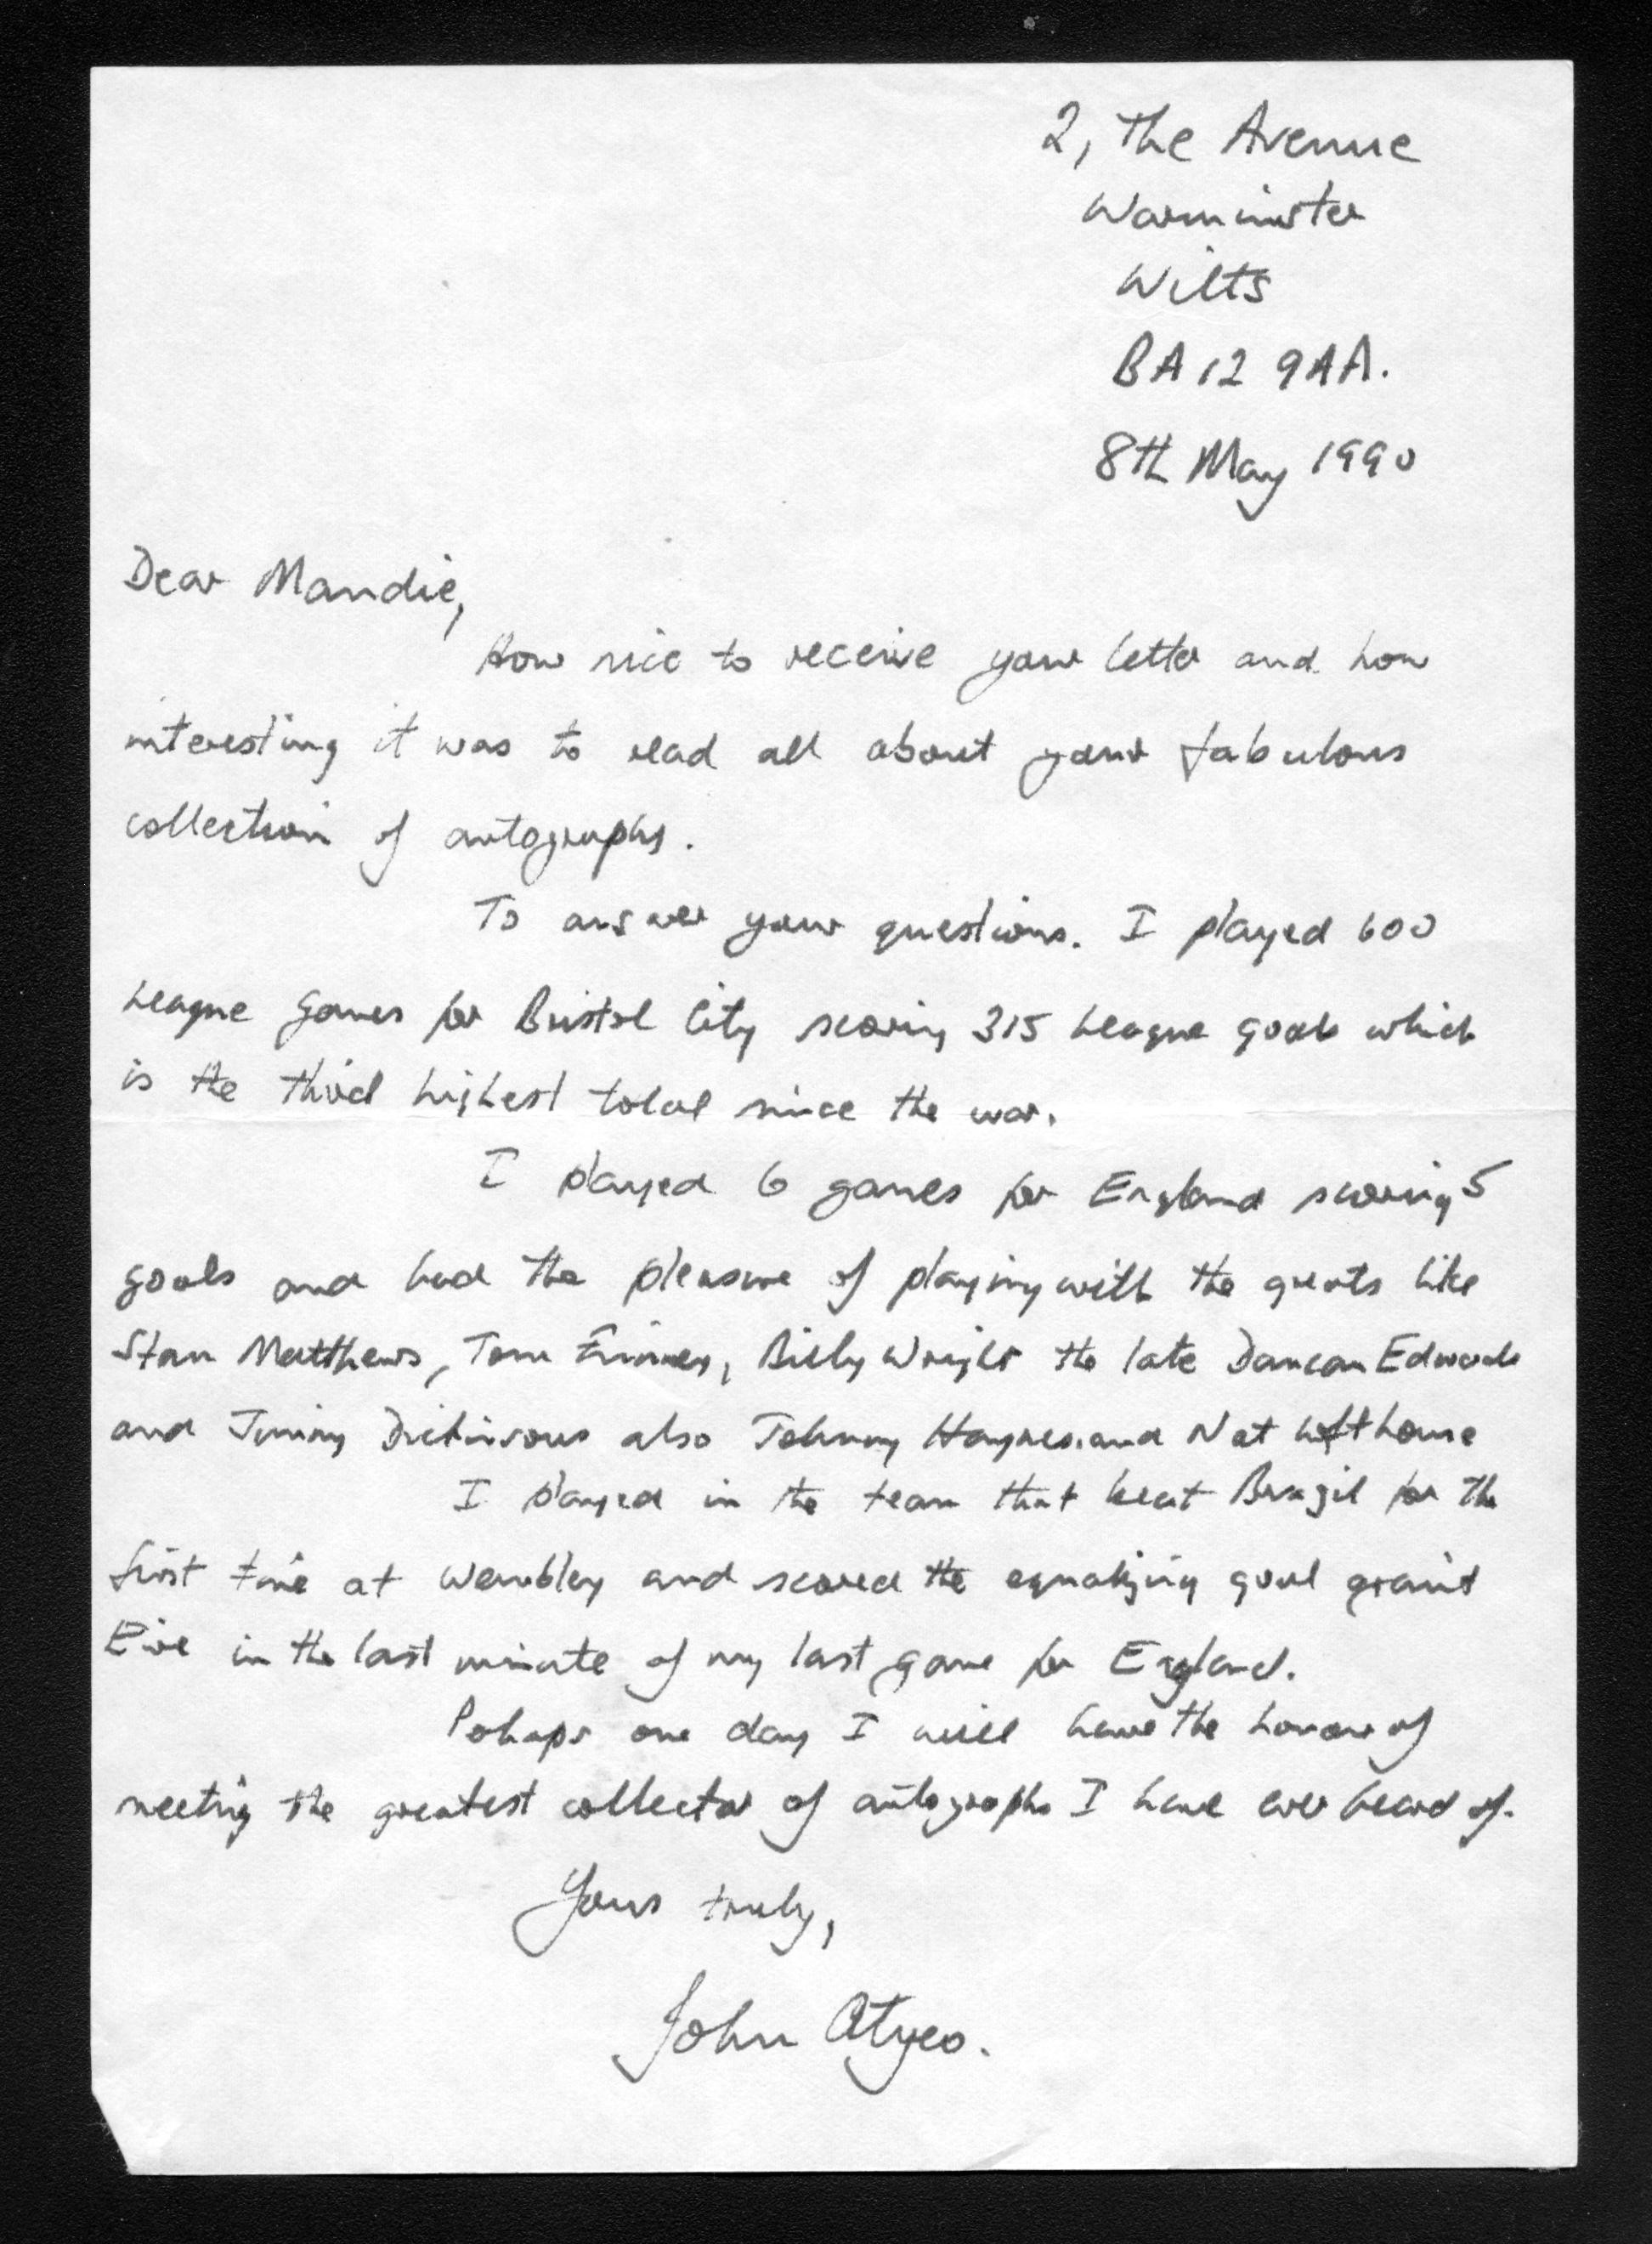 2, The Avenue
Warminster
Wilts
BA12 9AA.
8th May 1990
Dear Mandie,
How nice to receive your letter and how
interesting it was to read all about your fabulous
collection of autographs.
To answer your questions. I played 600
League games for Bristol City scoring 315 League goals which
is the third highest total since the war.
I played 6 games for England scoring 5
goals and had the pleasure of playing with the greats like
Stan Matthews, Tom Finney, Billy Wright the late Duncan Edwards
and Jimmy Dickinsons also Johnny Haynes and Nat Lofthouse
I played in the team that beat Brazil for the
first time at Wembley and scored the equalizing goal against
Eire in the last minute of my last game for England.
Perhaps one day I will have the honour of
meeting the greatest collector of autographs I have ever heard of.
Yours truly,
John Atyeo.